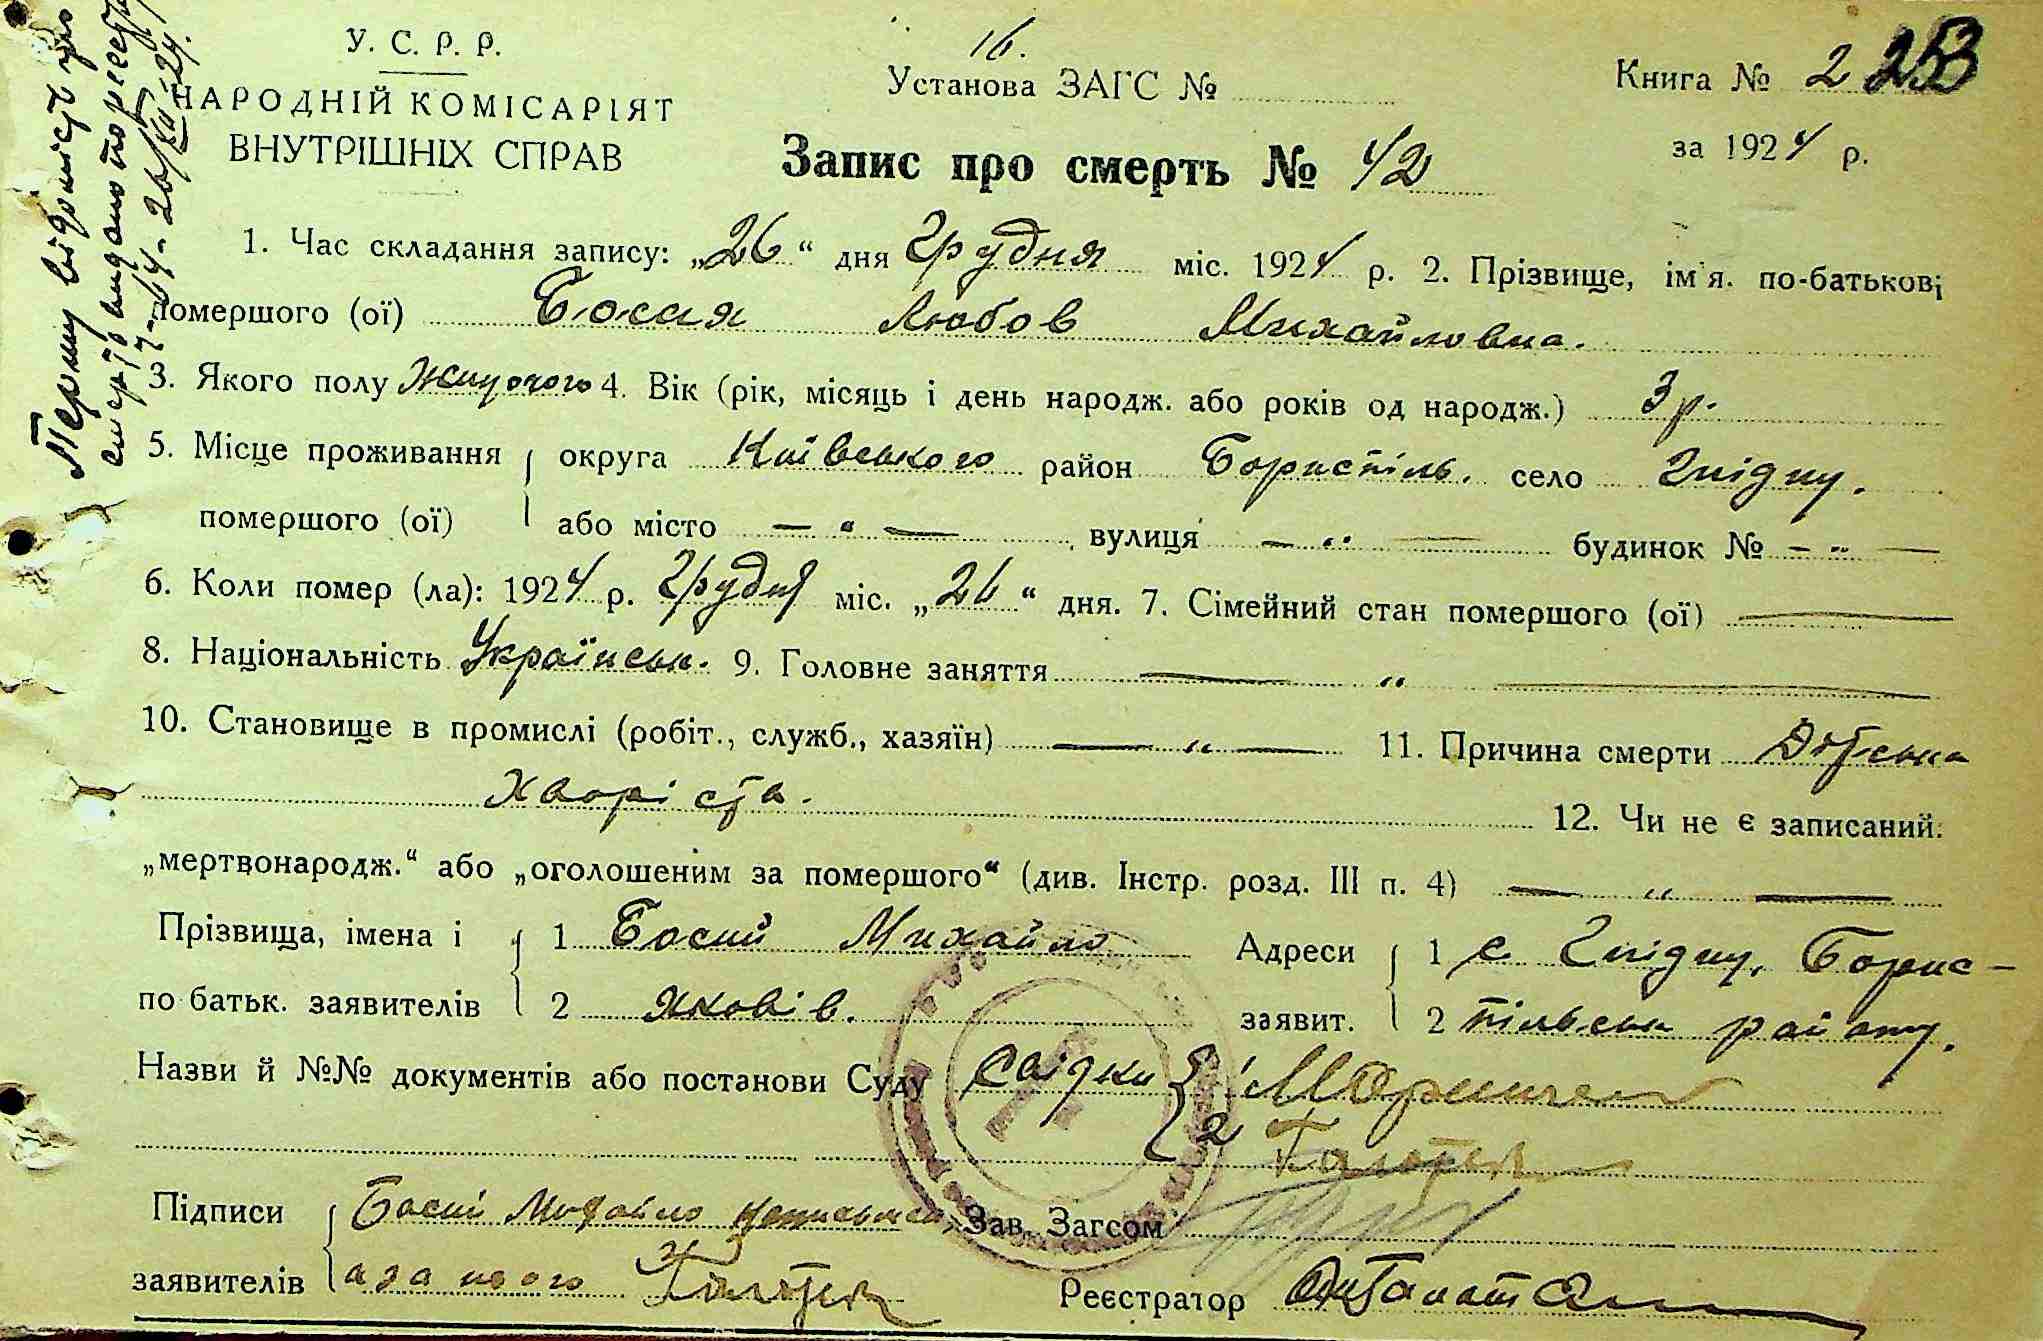 У. С. Р. Р.
НАРОДНІЙ КОМІСАРІЯТ
ВНУТРІШНІХ СПРАВ
16.
Установа ЗАГС №
Книга № 2 253
за 1924 р.
Запис про смерть № 42
1. Час складання запису: „26“ дня Грудня міс. 1924 р. 2. Прізвище, ім'я. по-батькові
помершого (ої) Босая Любов Михайловна.
3. Якого полу Жиночого 4. Вік (рік, місяць і день народж. або років од народж.) 3 р.
5. Місце проживання округа Київського район Бориспіль. село Гнідин.
помершого (ої) або місто — " — вулиця — " — будинок № — " —
6. Коли помер (ла): 1924 р. Грудня міс. „26“ дня. 7. Сімейний стан помершого (ої) —
8. Національність Українськ. 9. Головне заняття — " —
10. Становище в промислі (робіт., служб., хазяїн) — " — 11. Причина смерти Дітська
хворіста.
12. Чи не є записаний:
„мертвонародж.“ або „оголошеним за помершого“ (див. Інстр. розд. III п. 4) — " —
Прізвища, імена і 1 Босий Михайло Адреси 1 с. Гнідин, Борис-
по батьк. заявителів 2 Яковів. заявит. 2 пільськ району.
Назви й №№ документів або постанови Суду Свідки 1
2
Підписи Босий Михайло Зав. Загсом
заявителів а за його Реєстратор
Першу відомість про
смерть видано